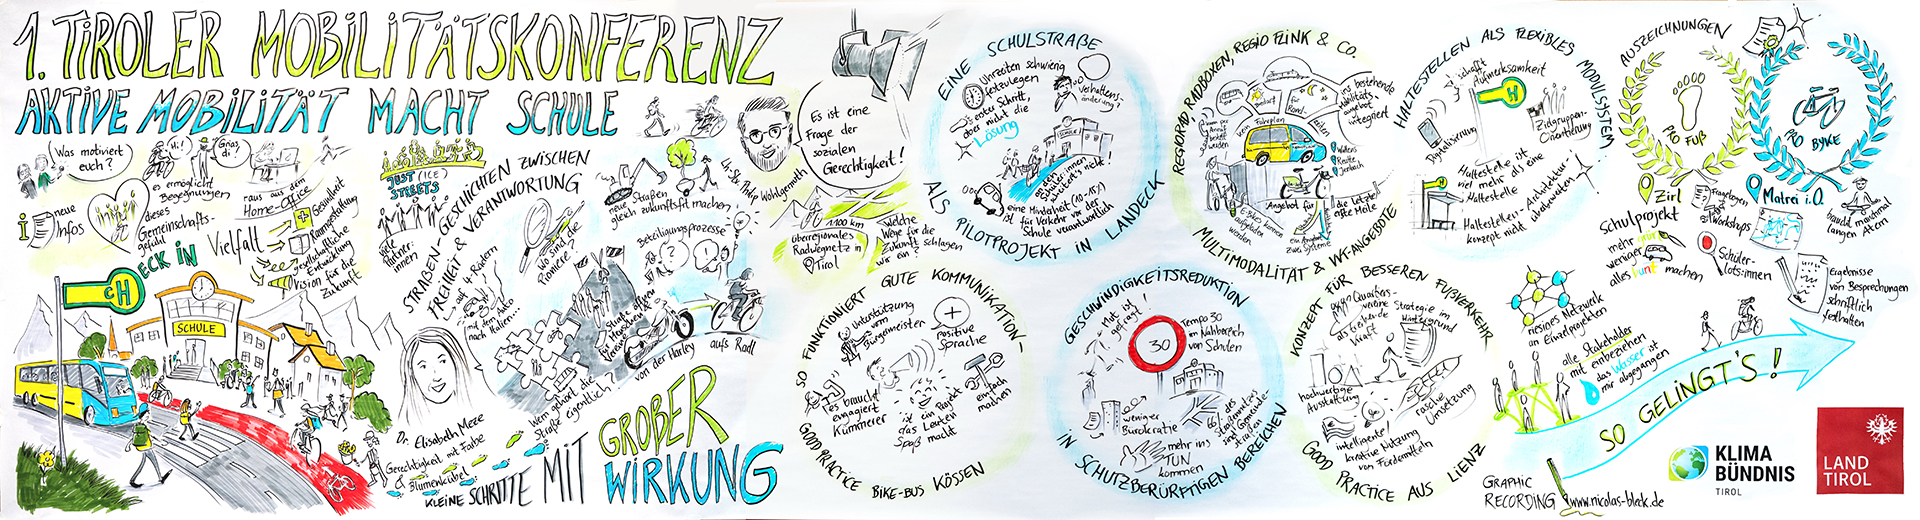 1. TIROLER MOBILITÄTSKONFERENZ
AKTIVE MOBILITÄT MACHT SCHULE
Was motiviert
euch?
Hi!
es ermöglicht
Begegnungen
raus aus dem
Home-Office
neue
Infos
dieses
Gemeinschafts-
gefühl
Vielfalt
Gesundheit
Raumgestaltung
gesellschaftliche
Entwicklung
Vision für die
Zukunft
cH ECK IN
SCHULE
JUST (ICE)
STREETS
STRAßEN-GESCHICHTEN ZWISCHEN
FREIHEIT & VERANTWORTUNG
auf 4 Rädern
mit dem Auto
nach
Italien...
wo sind die
Pioniere?
Dr. Elisabeth Meze
Gerechtigkeit mit Farbe
& Blumenkübel
Wem gehört die
Straße eigentlich?
Straße öffnen
für Menschen &
Vereine
neue Straßen
gleich zukunftsfit machen
Beteiligungsprozesse
von der Harley
aufs Radl
KLEINE SCHRITTE MIT
GROßER
WIRKUNG
LH-Stv. Philip Wohlgemuth
Es ist eine
Frage der
sozialen
Gerechtigkeit!
1100 km
überregionales
Radwegnetz in
Tirol
Welche
Wege für die
Zukunft schlagen
wir ein?
EINE SCHULSTRAßE
ALS PILOTPROJEKT IN LANDECK
Uhrzeiten schwierig
festzulegen
Verhaltens-
änderung?
erster Schritt,
aber nicht die
Lösung
SCHULE
an den
Schüler:innen
scheitert's nicht!
eine Minderheit (10-15%)
ist für Verkehr vor der
Schule verantwortlich
REGIORAD, RADBOXEN, REGIO FLINK & CO.
MULTIMODALITÄT & VVT-ANGEBOTE
Bedarf
für
Rand-
zeiten
kein Fahrplan
ins bestehende
Mobilitäts-
angebot
integriert
Wattens
Reutte
Jenbach
E-Bikes
können
angeboten
werden
Angebot für
die letzte/
erste Meile
ein Angebot
zwei Systeme
HALTESTELLEN ALS FLEXIBLES MODULSYSTEM
schafft
Aufmerksamkeit
H
Digitalisierung
Zielgruppen-
Orientierung
Haltestelle ist
viel mehr als eine
Haltestelle
Haltestellen-Architektur-
konzept nicht
überladen
AUSZEICHNUNGEN
PRO FUß
PRO BYKE
Zirl
Schulprojekt
mehr grün
weniger
alles bunt machen
Fragebogen
&
Workshops
Schüler-
lots:innen
Matrei i.O.
braucht manchmal
langen Atem
Ergebnisse
von Besprechungen
schriftlich
festhalten
SO FUNKTIONIERT GUTE KOMMUNIKATION-
GOOD PRACTICE BIKE-BUS KÖSSEN
Unterstützung
vom
Bürgermeister
positive
Sprache
es braucht
engagiert
Kümmerer
ist ein Projekt
das Leuten
Spaß macht
einfach
machen
GESCHWINDIGKEITSREDUKTION
IN SCHUTZBERÜRFTIGEN BEREICHEN
Mut ist
gefragt!
30
Tempo 30
im Nahbereich
von Schulen
weniger
Bürokratie
66% des
Straßennetzes
sind Gemeinde-
straßen
mehr ins
TUN
kommen
KONZEPT FÜR BESSEREN FUßVERKEHR
GOOD PRACTICE AUS LIENZ
Quartiers-
vereine
als treibende
Kraft
Strategie im
Hintergrund
hochwertige
Ausstattung
rasche
Umsetzung
intelligente/
kreative Nutzung
von Fördermitteln
riesiges Netzwerk
an Einzelprojekten
alle Stakeholder
mit einbeziehen
das Wasser ist
nur abgegangen
SO GELINGT'S!
GRAPHIC
RECORDING www.nicolas-bleck.de
KLIMA
BÜNDNIS
TIROL
LAND
TIROL